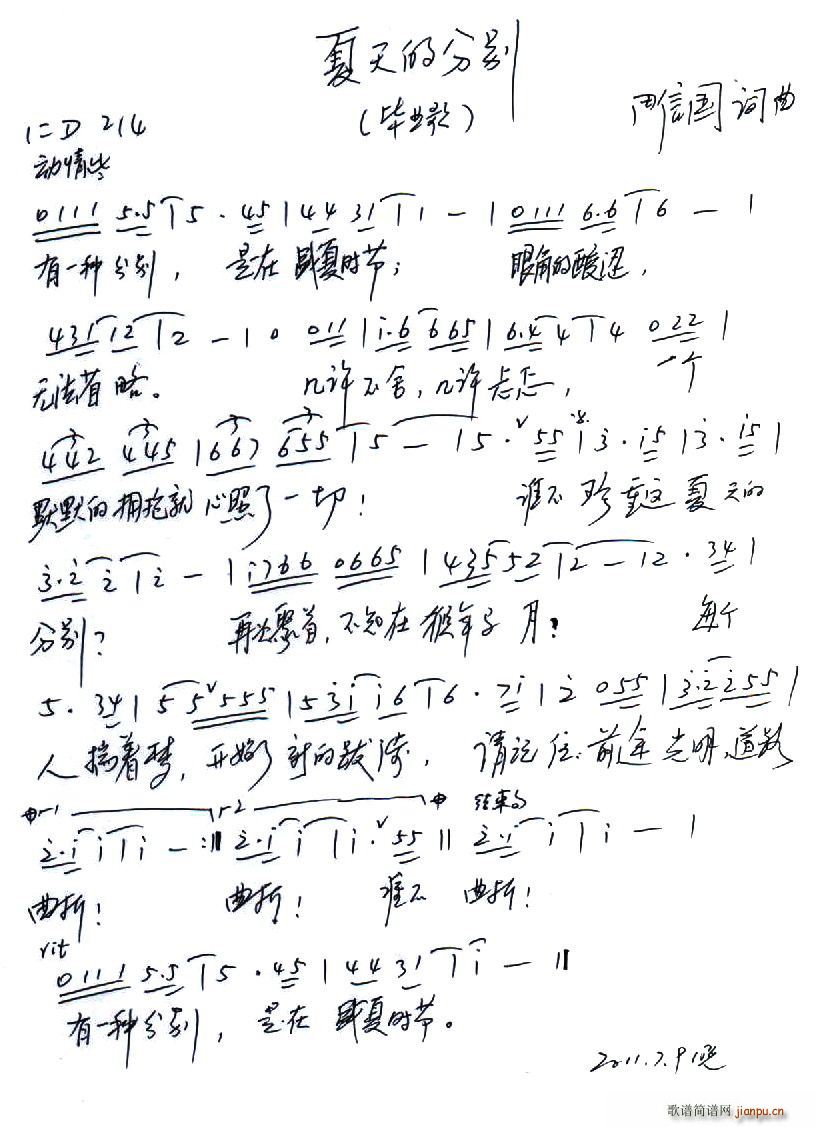 夏天的分别
(毕业歌)
信国 词曲
1=D 2/4
动情些
0111 5.5 | 5 . 45 | 44 31 | 1 - | 0111 6.6 | 6 - |
有一种分别， 是在盛夏时节； 眼角的酸涩，
431 12 | 2 - | 0 011 | i.6 665 | 6.4 4 | 4 022 |
无法省略。 几许不舍，几许忐忑， 一个
442 445 | 667 655 | 5 - | 5 . 55 | 3 . i5 | 3 . i5 |
默默的拥抱就心照了一切！ 谁不珍重这夏天的
3.2 2 | 2 - | i766 0665 | 435 52 | 2 - | 2 . 34 |
分别？ 再次聚首，不知在猴年马月？ 每个
5 . 34 | 5 5 555 | 53i i6 | 6 . 7i | 2 055 | 3.2 255 |
人揣着梦，开始了新的跋涉， 请记住：前途光明、道路
1 2 结束句
2.i i | i - :‖ 2.i i | i . 55 ‖ 2.i i | i - |
曲折！ 曲折！ 谁不 曲折！
rit
0111 5.5 | 5 . 45 | 44 31 | i - ‖
有一种分别， 是在盛夏时节。
2011.7.9
歌谱简谱网 jianpu.cn